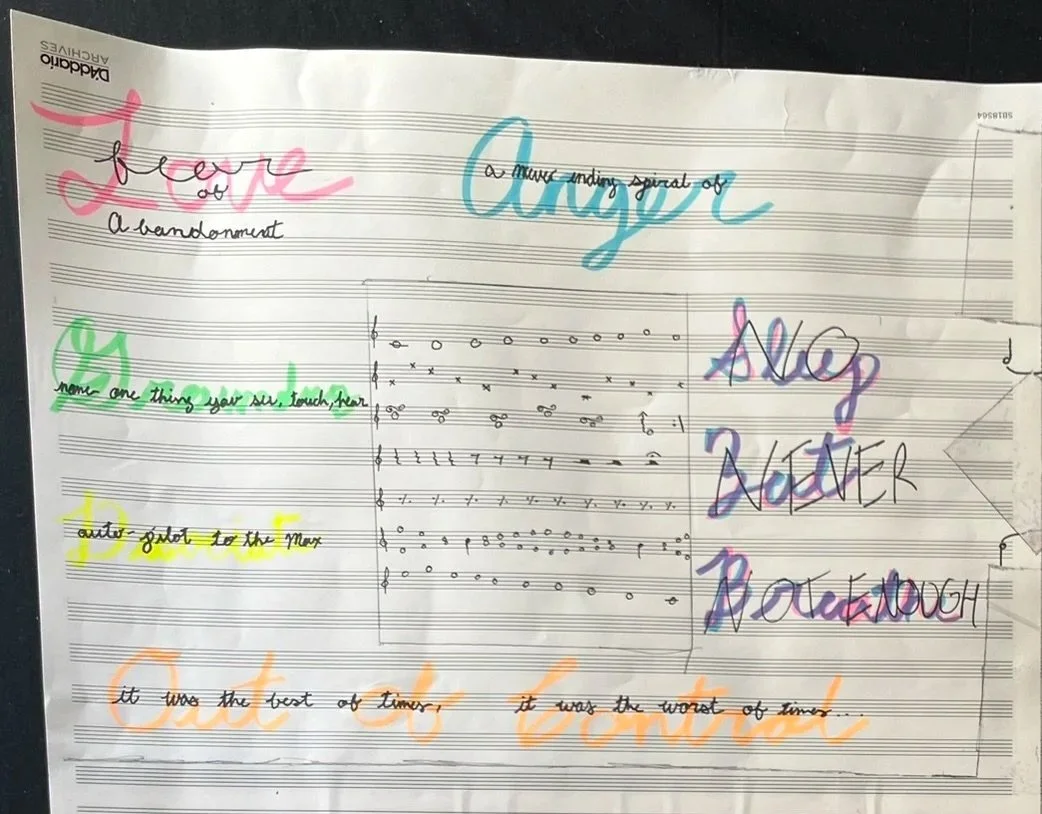 D'Addario
ARCHIVES
SB18564
Love
fear
of
Abandonment
Anger
a never ending spiral of
Grounding
name one thing you see, touch, hear
auto-pilot to the Max
Sleep
NO
Eat
NEVER
Breathe
NOT ENOUGH
Out of Control
it was the best of times, it was the worst of times...